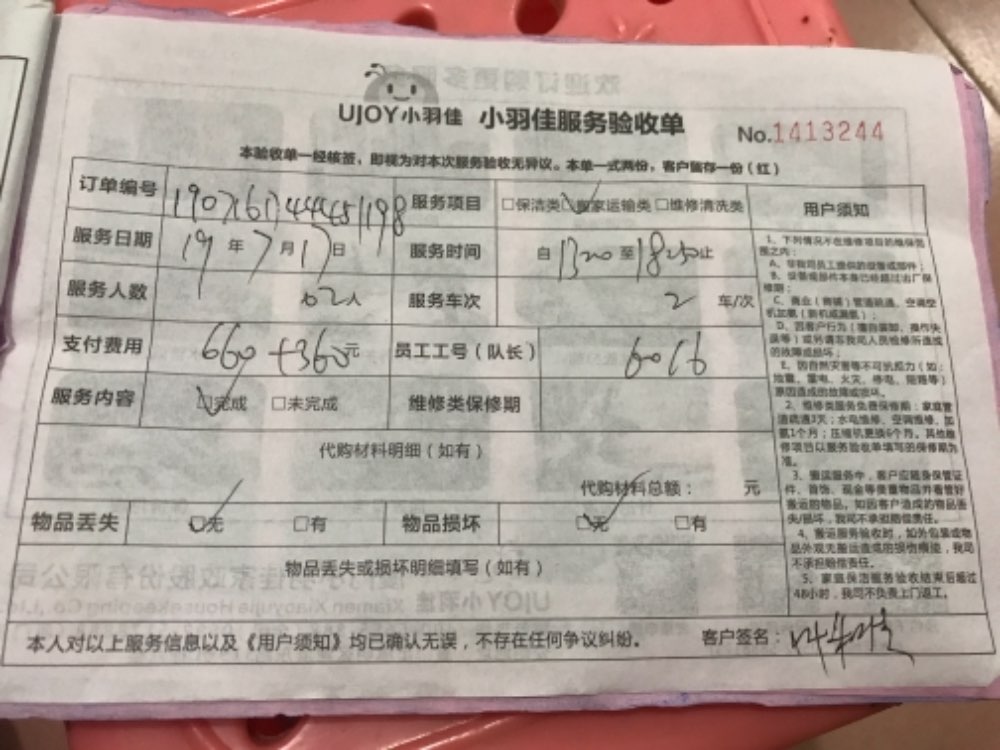 UJOY小羽佳 小羽佳服务验收单
No.1413244
本验收单一经核签，即视为对本次服务验收无异议。本单一式两份，客户留存一份（红）
订单编号 服务项目 □保洁类 □搬家运输类 □维修清洗类 用户须知
服务日期 19年7月17日 服务时间 自1320至1820止
服务人数 02人 服务车次 2 车/次
支付费用 660+360元 员工工号（队长） 6016
服务内容 □完成 □未完成 维修类保修期
代购材料明细（如有）
代购材料总额： 元
物品丢失 □无 □有 物品损坏 □无 □有
物品丢失或损坏明细填写（如有）
1、下列情况不在维修项目的维保范
围之内：
A、非我司员工提供的设备或部件；
B、设备或部件本身已经超过出厂保
修期；
C、商业（商铺）管道疏通、空调空
机加氨（新机或漏氨）；
D、因客户行为（擅自装卸、操作失
误等）或另请非我司人员检修所造成
的故障或损坏；
E、因自然灾害等不可抗力（如：
地震、雷电、火灾、停电、限路等）
原因造成的故障或损坏。
2、维修类服务免费保修期：家庭管
道疏通3天；水电维修、空调维修、加
氨1个月；压缩机更换6个月。其他维
修项目以服务验收单填写的保修期为
准。
3、搬运服务中，客户应随身保管证
件、首饰、现金等贵重物品并看管好
搬运的物品，如因客户造成的物品丢
失/损坏，我司不承担赔偿责任。
4、搬运服务验收时，如外包装或物
品外观无搬运造成的损伤痕迹，我司
不承担赔偿责任。
5、家庭保洁服务验收结束后超过
48小时，我司不负责上门返工。
本人对以上服务信息以及《用户须知》均已确认无误，不存在任何争议纠纷。 客户签名：